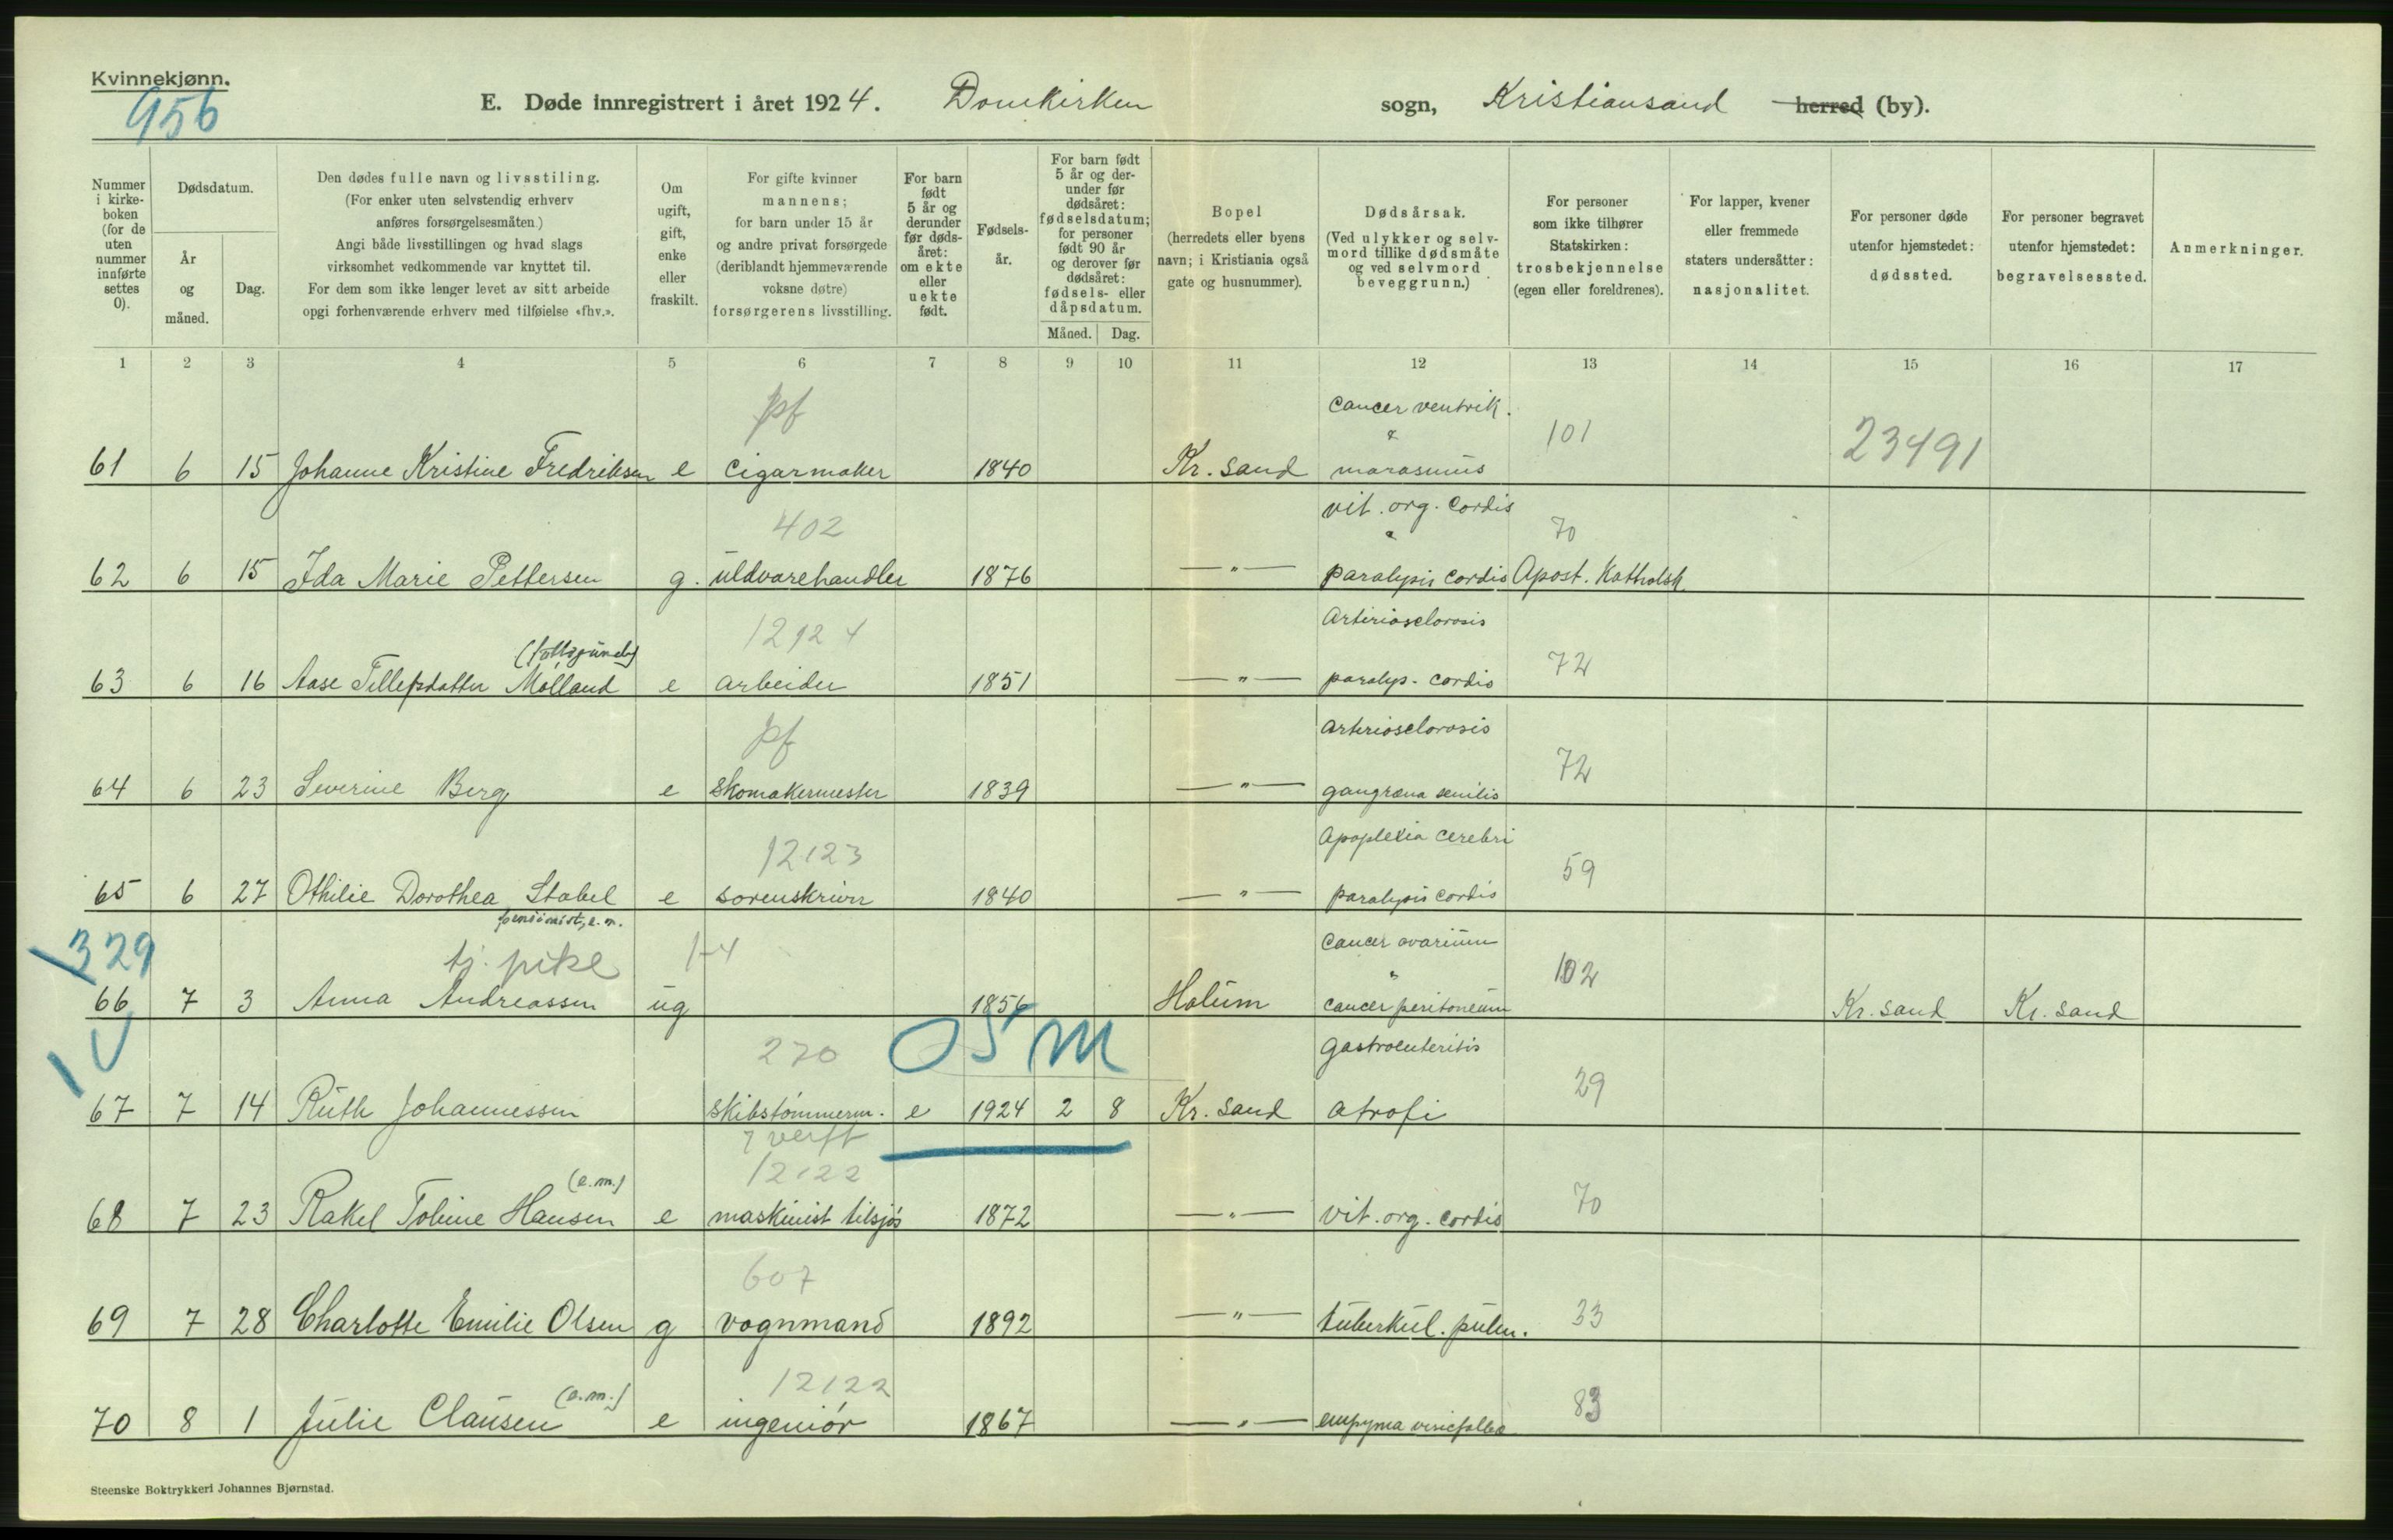 Kvinnekjønn.
956
E. Døde innregistrert i året 1924. Domkirken sogn, Kristiansand herred (by).
Nummer i kirke-boken (for de uten nummer innførte settes 0).
Dødsdatum.
År og måned.
Dag.
Den dødes fulle navn og livsstilling.
(For enker uten selvstendig erhverv
anføres forsørgelsesmåten.)
Angi både livsstillingen og hvad slags
virksomhet vedkommende var knyttet til.
For dem som ikke lenger levet av sitt arbeide
opgi forhenværende erhverv med tilføielse «fhv.».
Om ugift, gift, enke eller fraskilt.
For gifte kvinner
mannens;
for barn under 15 år
og andre privat forsørgede
(deriblandt hjemmeværende
voksne døtre)
forsørgerens livsstilling.
For barn født 5 år og derunder før døds-året: om ekte eller uekte født.
Fødsels-år.
For barn født 5 år og der-under før dødsåret: fødselsdatum; for personer født 90 år og derover før dødsåret: fødsels- eller dåpsdatum.
Måned. Dag.
Bopel
(herredets eller byens
navn; i Kristiania også
gate og husnummer).
Dødsårsak.
(Ved ulykker og selv-
mord tillike dødsmåte
og ved selvmord
beveggrunn.)
For personer
som ikke tilhører
Statskirken:
trosbekjennelse
(egen eller foreldrenes).
For lapper, kvener
eller fremmede
staters undersåtter:
nasjonalitet.
For personer døde
utenfor hjemstedet:
dødssted.
For personer begravet
utenfor hjemstedet:
begravelsessted.
Anmerkninger.
1 2 3 4 5 6 7 8 9 10 11 12 13 14 15 16 17
pf cancer ventrik.
& 101 23491
61 6 15 Johanne Kristine Fredriksen e cigarmaker 1840 Kr. sand marasmus
402 vit. org. cordis
70
62 6 15 Ida Marie Pettersen g. uldvarehandler 1876 — " — paralysis cordis Apost. Katholsk
12124 Arteriosclorosis
72
63 6 16 Aase Tellefsdatter Mölland e arbeider 1851 — " — paralys. cordis
pf arteriosclorosis
72
64 6 23 Severine Berg e skomakermester 1839 — " — gangræna senilis
12123 Apoplexia cerebri
59
65 6 27 Othilie Dorothea Stabel e sorenskriver 1840 — " — paralysis cordis
pensionist, e.m.
329 tj. pike 14 cancer ovarium
" 102
66 7 3 Anna Andreassen ug 1856 Halum cancer peritoneum Kr. sand Kr. sand
270 05 m gastroenteritis
29
67 7 14 Ruth Johannessen skibstömmerm. e 1924 2 8 Kr. sand atrofi
verft
12122
(e.m.) 70
68 7 23 Rakel Toline Hansen e maskinist tilsjös 1872 — " — vit. org. cordis
607
33
69 7 28 Charlotte Emilie Olsen g vognmand 1892 — " — tuberkul. pulm.
12122
(e.m.) 83
70 8 1 Julie Clausen e ingeniör 1867 — " — empyma
Steenske Boktrykkeri Johannes Bjørnstad.